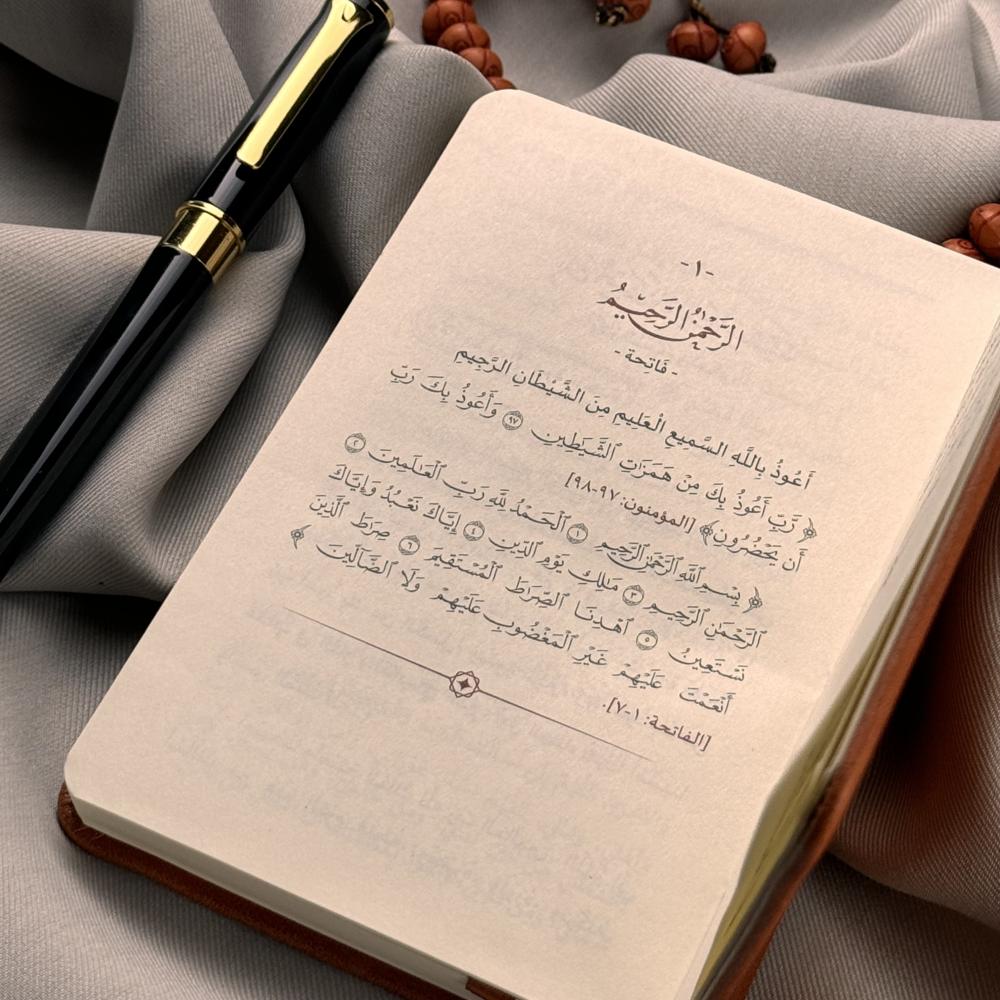 -١-
الرَّحْمٰنُ الرَّحِيمُ
- فَاتِحَة -
أَعُوذُ بِاللَّهِ السَّمِيعِ الْعَلِيمِ مِنَ الشَّيْطَانِ الرَّجِيمِ
﴿ رَّبِّ أَعُوذُ بِكَ مِنْ هَمَزَٰتِ ٱلشَّيَٰطِينِ ٩٧ وَأَعُوذُ بِكَ رَبِّ
أَن يَحْضُرُونِ﴾ [المؤمنون: ٩٧-٩٨]
﴿ بِسْمِ ٱللَّهِ ٱلرَّحْمَٰنِ ٱلرَّحِيمِ ١ ٱلْحَمْدُ لِلَّهِ رَبِّ ٱلْعَٰلَمِينَ ٢
ٱلرَّحْمَٰنِ ٱلرَّحِيمِ ٣ مَٰلِكِ يَوْمِ ٱلدِّينِ ٤ إِيَّاكَ نَعْبُدُ وَإِيَّاكَ
نَسْتَعِينُ ٥ ٱهْدِنَا ٱلصِّرَٰطَ ٱلْمُسْتَقِيمَ ٦ صِرَٰطَ ٱلَّذِينَ
أَنْعَمْتَ عَلَيْهِمْ غَيْرِ ٱلْمَغْضُوبِ عَلَيْهِمْ وَلَا ٱلضَّآلِّينَ ﴾
[الفاتحة: ١-٧].